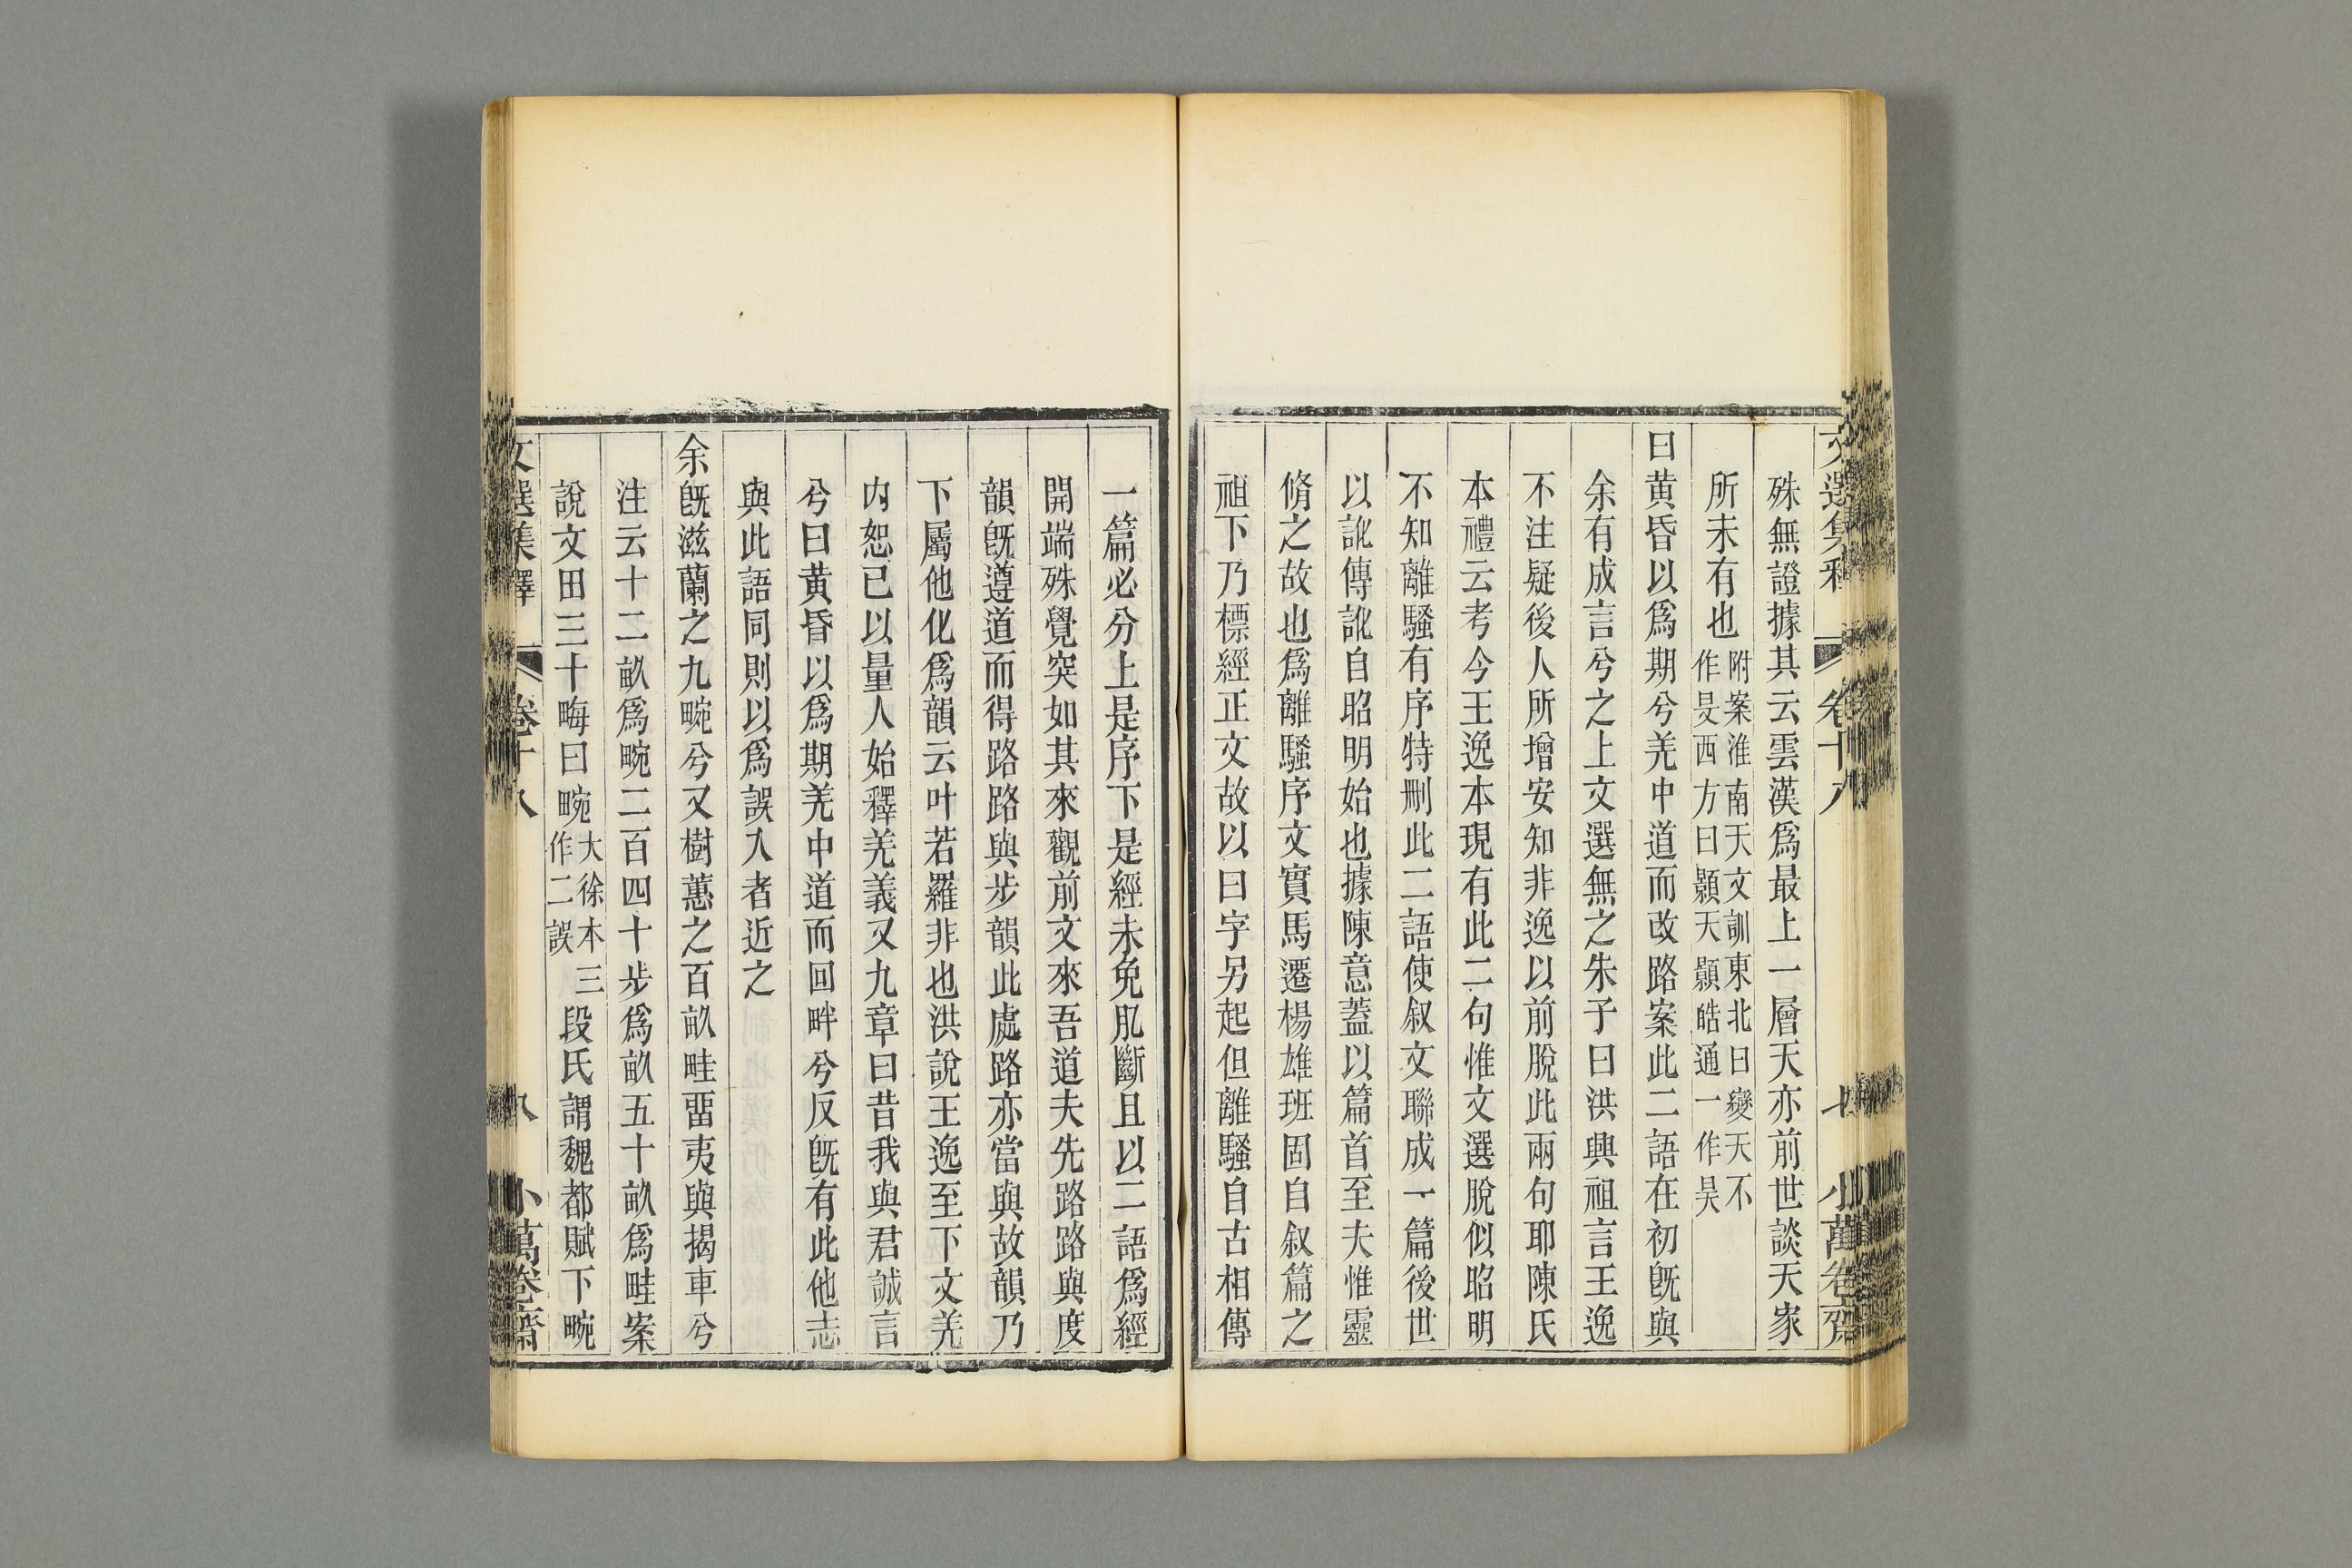 文選集釋 卷十八 七 小萬卷齋
殊無證據其云雲漢爲最上一層天亦前世談天家
所未有也附案淮南天文訓東北曰變天不作旻西方曰顥天顥皓通一作昊
曰黄昏以爲期兮羌中道而改路案此二語在初旣與
余有成言兮之上文選無之朱子曰洪興祖言王逸
不注疑後人所增安知非逸以前脫此兩句耶陳氏
本禮云考今王逸本現有此二句惟文選脫似昭明
不知離騷有序特刪此二語使叙文聯成一篇後世
以訛傳訛自昭明始也據陳意蓋以篇首至夫惟靈
脩之故也爲離騷序文實馬遷楊雄班固自叙篇之
祖下乃標經正文故以曰字另起但離騷自古相傳
一篇必分上是序下是經未免肊斷且以二語爲經
開端殊覺突如其來觀前文來吾道夫先路路與度
韻旣遵道而得路路與步韻此處路亦當與故韻乃
下屬他化爲韻云叶若羅非也洪說王逸至下文羌
内恕已以量人始釋羌義又九章曰昔我與君誠言
兮曰黄昏以爲期羌中道而回畔兮反旣有此他志
與此語同則以爲誤入者近之
余旣滋蘭之九畹兮又樹蕙之百畝畦畱夷與揭車兮
注云十二畝爲畹二百四十步爲畝五十畝爲畦案
說文田三十畮曰畹大徐本三作二誤段氏謂魏都賦下畹
文選集釋 卷十八 八 小萬卷齋